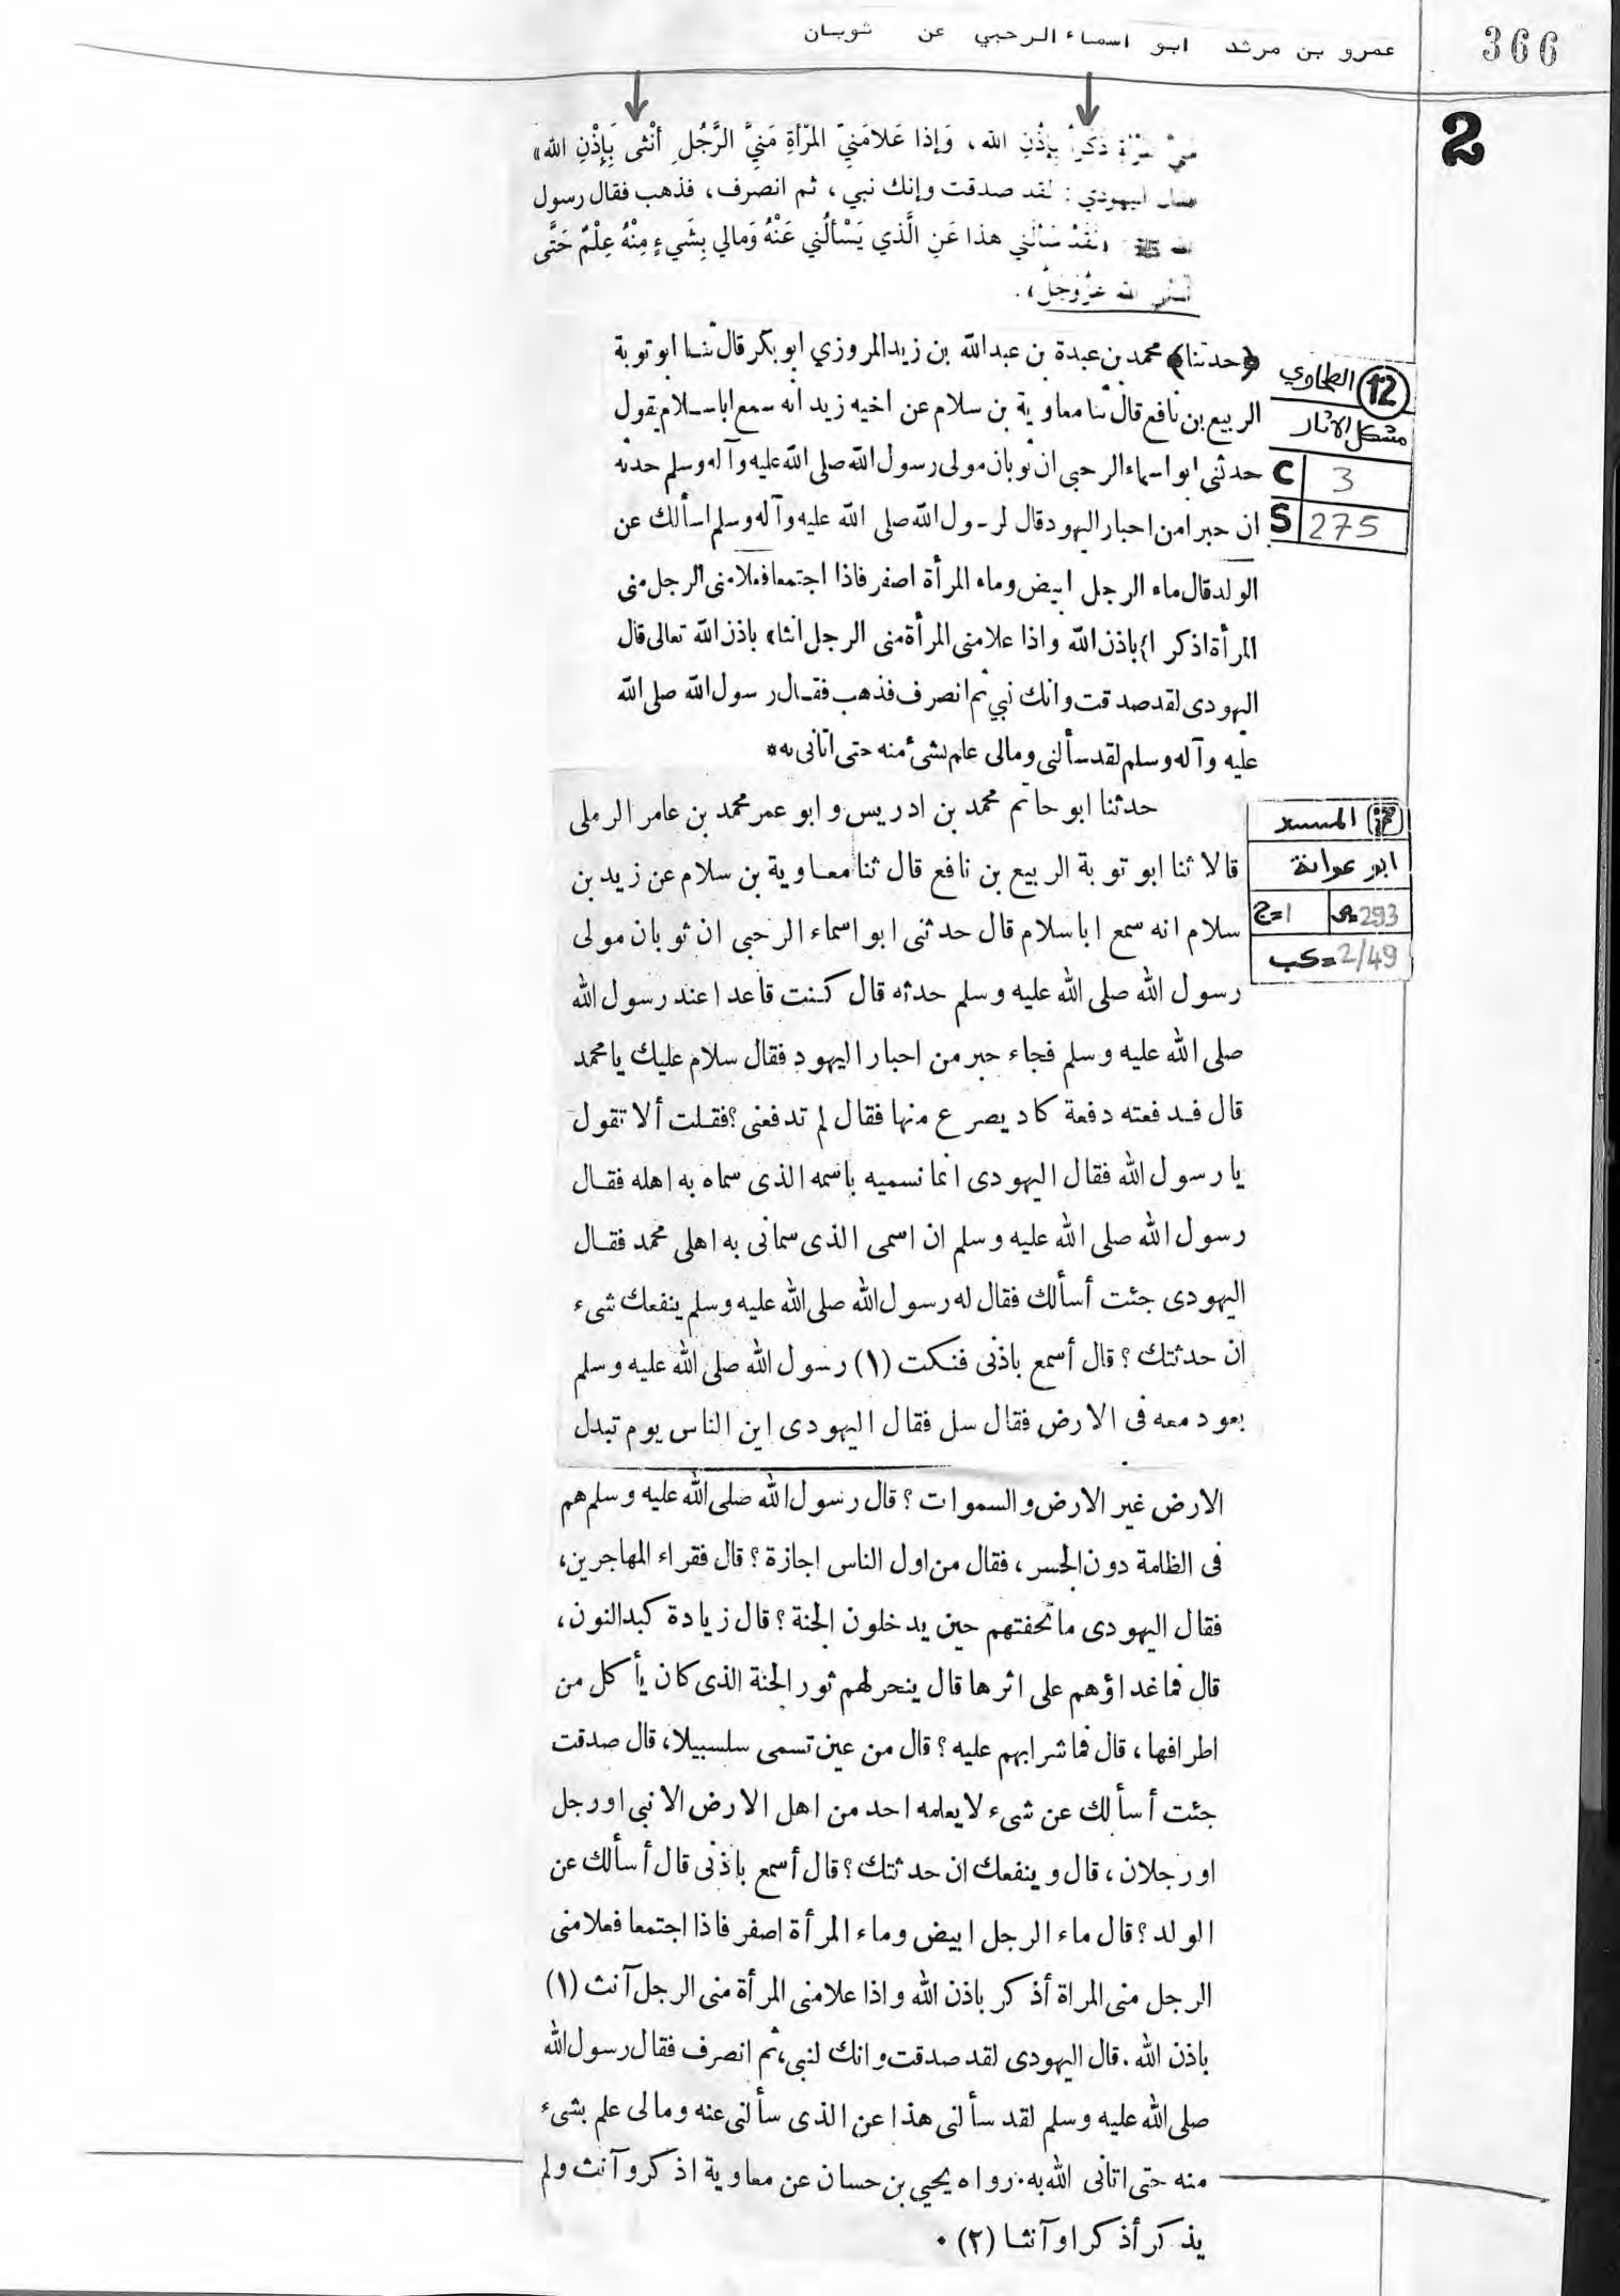 366
عمرو بن مرثد ابو اسماء الرحبي عن ثوبان
2
ذَكَراً بِإِذْنِ الله، وَإِذا عَلامَنِيّ المَرْأَةِ مَنِيَّ الرَّجُلِ أُنْثى بَإِذْنِ الله»
اليهودي: لقد صدقت وإنك نبي، ثم انصرف، فذهب فقال رسول
لَقَدْ سَأَلَني هذا عَنِ الَّذي يَسْأَلُني عَنْهُ وَمالي بِشَيءٍ مِنْهُ عِلْمٌ حَتَّى
الله عَزَّوَجَلَّ».
﴿حدثنا﴾ محمد بن عبدة بن عبدالله بن زيد المروزي ابو بكر قال ثنا ابو توبة
12 الطحاوي
الربيع بن نافع قال ثنا معاوية بن سلام عن اخيه زيد انه سمع اباسلام يقول
مشكل الآثار
حدثنى ابو اسماء الرحبى ان ثوبان مولى رسول الله صلى الله عليه وآله وسلم حدثه
C 3
ان حبرا من احبار اليهود قال لرسول الله صلى الله عليه وآله وسلم اسألك عن
S 275
الولد قال ماء الرجل ابيض وماء المرأة اصفر فاذا اجتمعا فعلا منى الرجل منى
المرأة اذكرا} باذن الله واذا علا منى المرأة منى الرجل انثاء باذن الله تعالى قال
اليهودى لقد صدقت وانك نبي ثم انصرف فذهب فقال رسول الله صلى الله
عليه وآله وسلم لقد سألنى ومالى علم بشئ منه حتى اتانى به*
حدثنا ابو حاتم محمد بن ادريس و ابو عمر محمد بن عامر الرملى
المسند
قالا ثنا ابو توبة الربيع بن نافع قال ثنا معاوية بن سلام عن زيد بن
ابو عوانة
سلام انه سمع ابا سلام قال حدثنى ابو اسماء الرحبى ان ثوبان مولى
ج=1 ص=293
رسول الله صلى الله عليه وسلم حدثه قال كنت قاعدا عند رسول الله
كب=2/49
صلى الله عليه وسلم فجاء حبر من احبار اليهود فقال سلام عليك يا محمد
قال فدفعته دفعة كاد يصرع منها فقال لم تدفعنى؟ فقلت ألا تقول
يا رسول الله فقال اليهودى انما نسميه باسمه الذى سماه به اهله فقال
رسول الله صلى الله عليه وسلم ان اسمى الذى سمانى به اهلى محمد فقال
اليهودى جئت أسألك فقال له رسول الله صلى الله عليه وسلم ينفعك شىء
ان حدثتك؟ قال أسمع باذنى فنكت (١) رسول الله صلى الله عليه وسلم
بعود معه فى الارض فقال سل فقال اليهودى اين الناس يوم تبدل
الارض غير الارض والسموات؟ قال رسول الله صلى الله عليه وسلم هم
فى الظلمة دون الجسر، فقال من اول الناس اجازة؟ قال فقراء المهاجرين،
فقال اليهودى ما تحفتهم حين يدخلون الجنة؟ قال زيادة كبد النون،
قال فما غداؤهم على اثرها قال ينحر لهم ثور الجنة الذى كان يأكل من
اطرافها، قال فما شرابهم عليه؟ قال من عين تسمى سلسبيلا، قال صدقت
جئت أسألك عن شىء لا يعلمه احد من اهل الارض الا نبى او رجل
او رجلان، قال وينفعك ان حدثتك؟ قال أسمع باذنى قال أسألك عن
الولد؟ قال ماء الرجل ابيض وماء المرأة اصفر فاذا اجتمعا فعلا منى
الرجل منى المراة أذكر باذن الله واذا علا منى المرأة منى الرجل آنث (١)
باذن الله. قال اليهودى لقد صدقت وانك لنبى، ثم انصرف فقال رسول الله
صلى الله عليه وسلم لقد سألنى هذا عن الذى سألنى عنه ومالى علم بشىء
منه حتى اتانى الله به. رواه يحيي بن حسان عن معاوية اذكر وآنث ولم
يذكر أذكرا وآنثا (٢) .